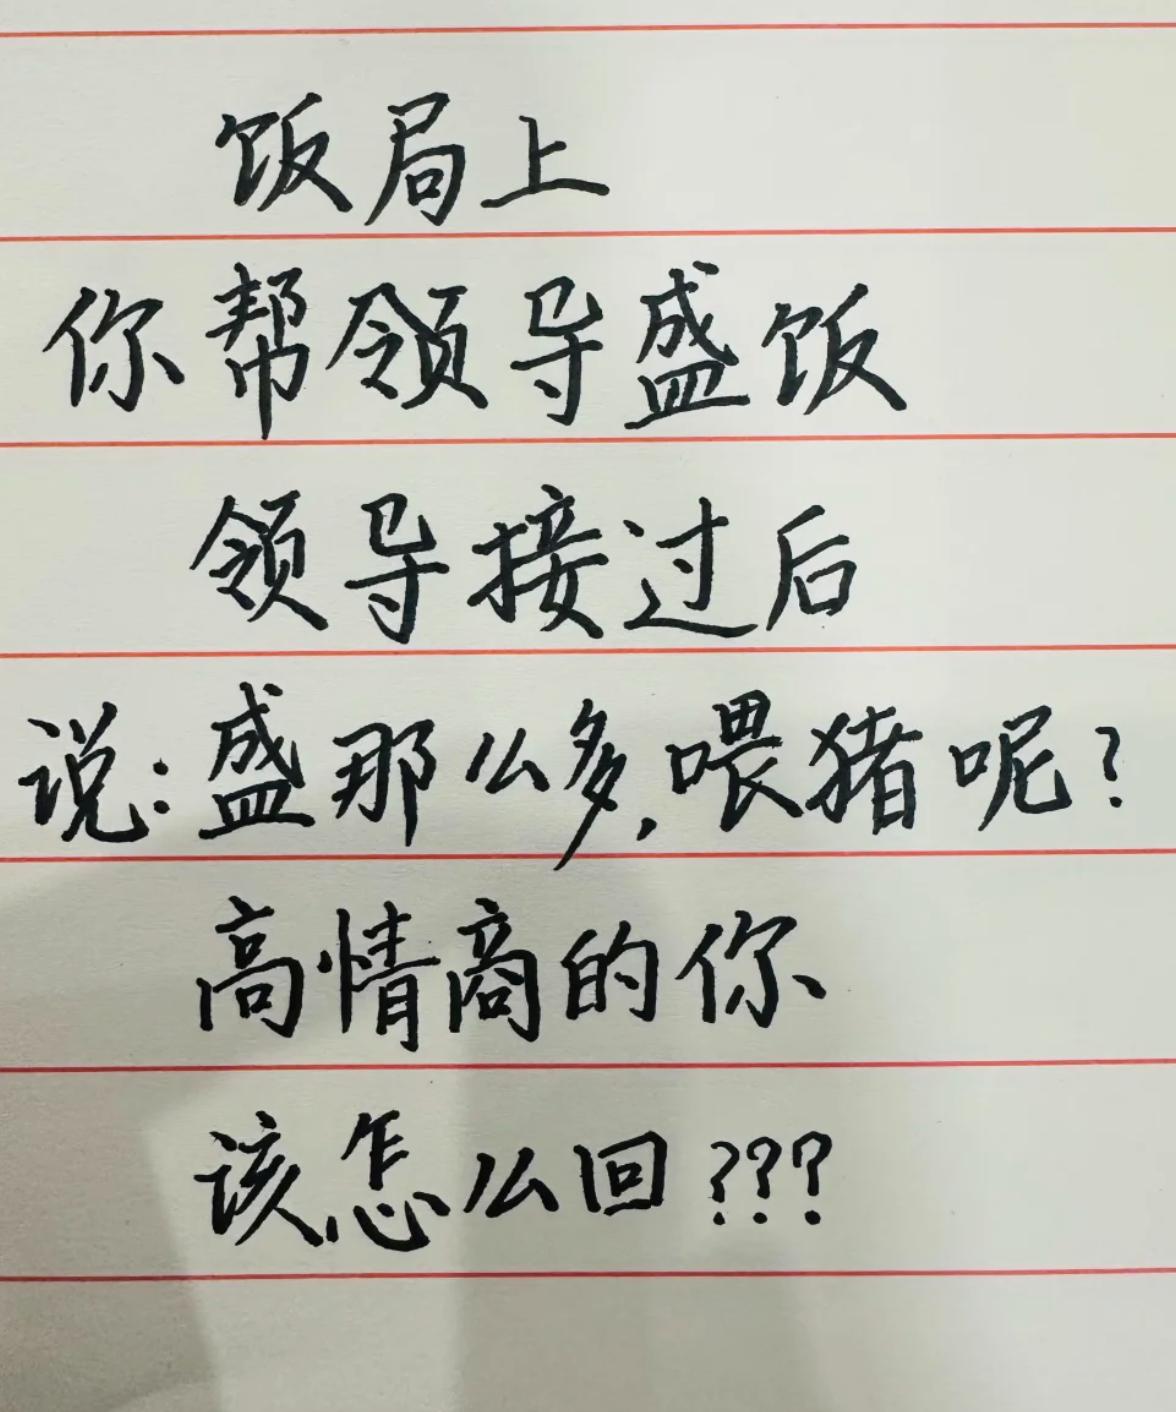 饭局上
你帮领导盛饭
领导接过后
说:盛那么多,喂猪呢?
高情商的你
该怎么回???